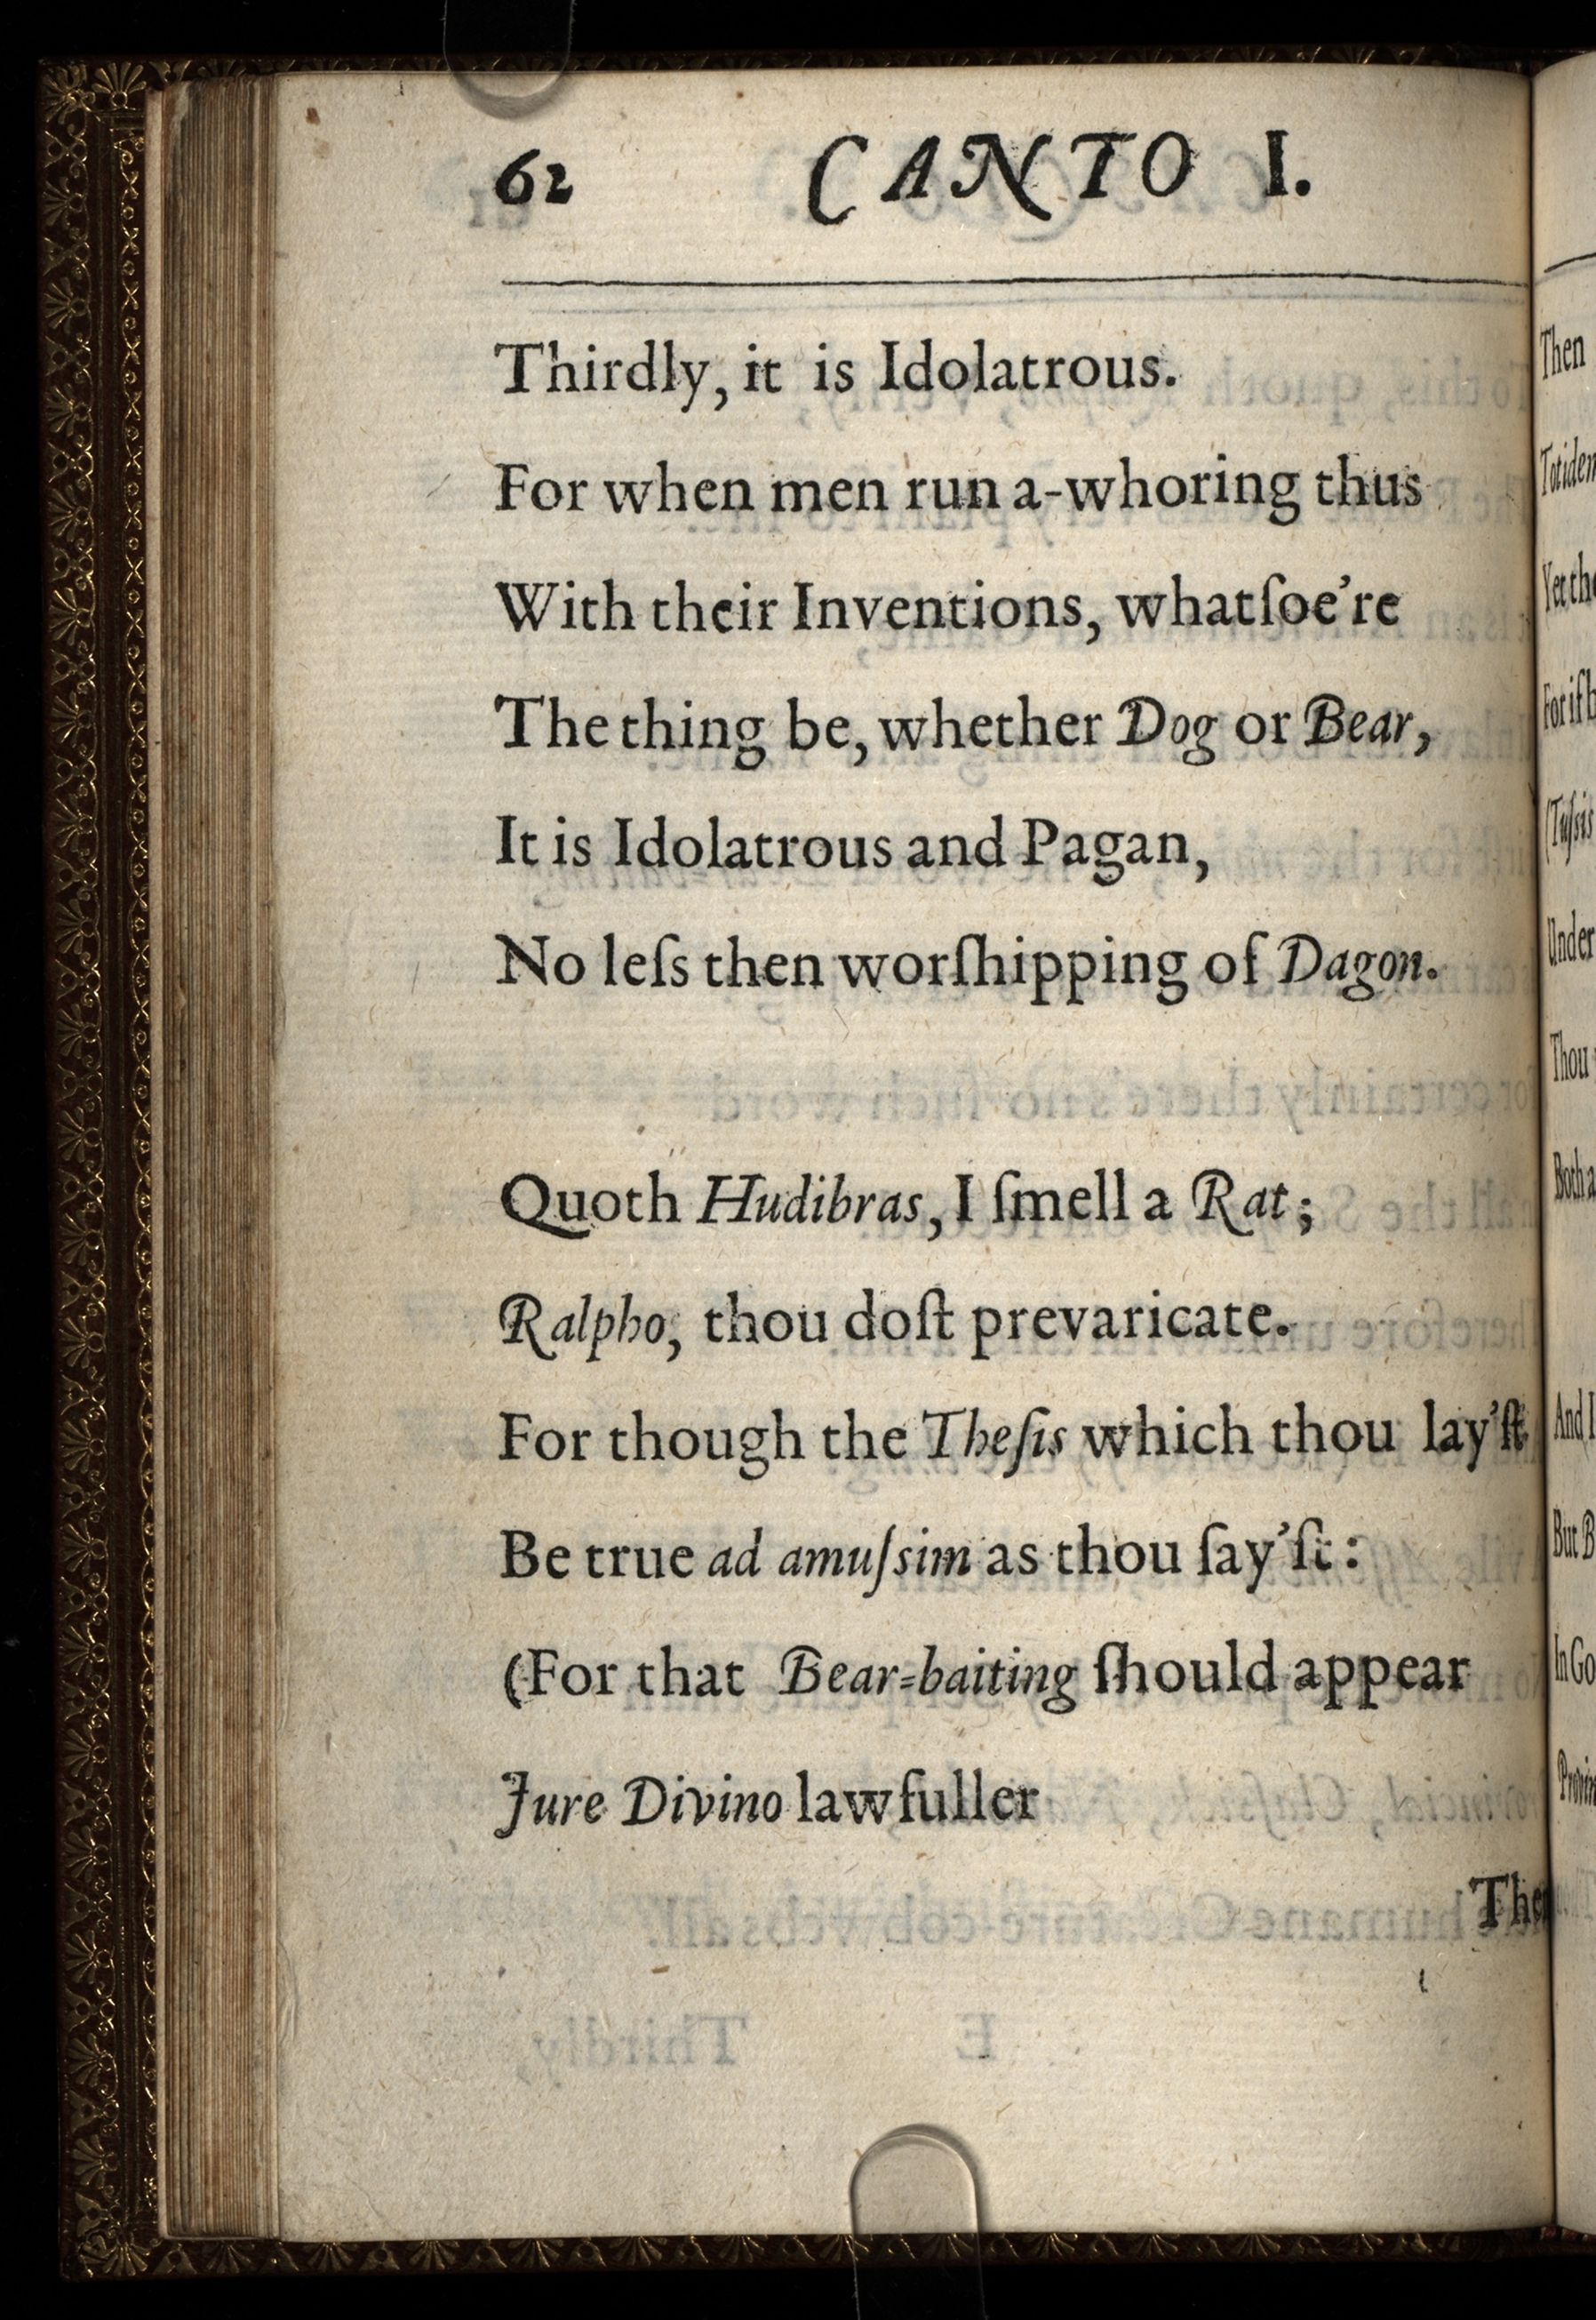 62 CANTO I.
Thirdly, it is Idolatrous.
For when men run a-whoring thus
With their Inventions, whatſoe’re
The thing be, whether Dog or Bear,
It is Idolatrous and Pagan,
No leſs then worſhipping of Dagon.
Quoth Hudibras, I ſmell a Rat;
Ralpho, thou doſt prevaricate.
For though the Theſis which thou lay’ſt
Be true ad amuſsim as thou ſay’ſt:
(For that Bear-baiting ſhould appear
Jure Divino lawfuller
Then
Then
Under
Thou